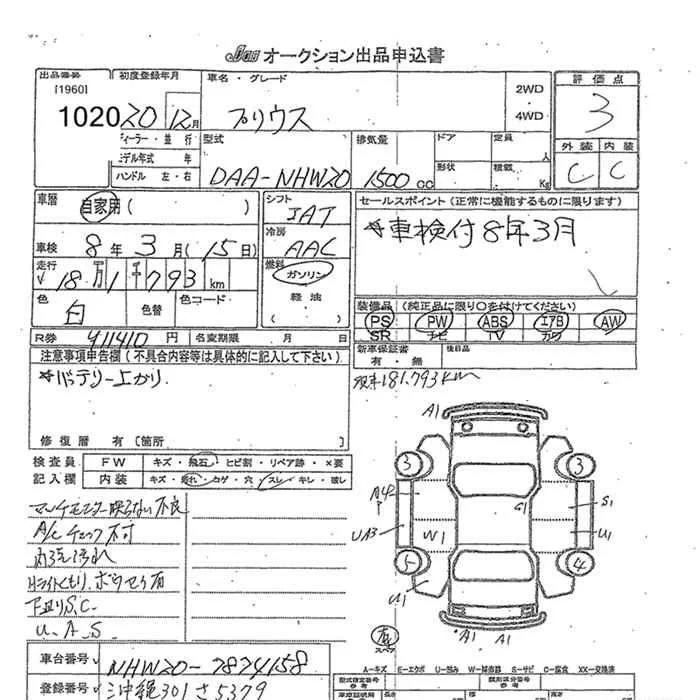 JAA オークション出品申込書
出品番号 初度登録年月 車名・グレード 2WD ・ 4WD 評価点
[1960]
1020 20年 12月 プリウス 3
外装 内装
C C
ディーラー・並行 型式 排気量 ドア 定員 人
モデル年式 年 形状 積載 Kg
ハンドル 左・右 DAA-NHW20 1500cc
車歴 自家用 ( ) シフト JAT セールスポイント (正常に機能するものに限ります)
冷房 AAC ☆車検付8年3月
車検 8年3月(15日)
走行 18万1千793km 燃料 ガソリン
軽油
( )
色 白 色替 色コード 装備品 (純正品に限り○を付けてください)
PS PW ABS エアB AW
SR ナビ TV カワ
R券 411410円 名変期限 月 日 新車保証書 有・無 後日品
注意事項申告欄 (不具合内容等は具体的に記入して下さい)
☆バッテリー上がり 181.793km
修復歴 有 〔箇所 〕
検査員 FW キズ・飛石・ヒビ割・リペア跡・×要
記入欄 内装 キズ・汚れ・コゲ・穴・スレ・キレ・破レ
マルチモニター映らない不良
A/Cチェック不可
内装汚れ
Hライトくもり、ボウセイ有
下廻りS.C.
U.A.S
A1
3 3
S1
G1
UA3 W1 U1
5 4
U1
A1 A1
スペア
車台番号 NHW20-7874158
登録番号 沖縄301さ5379
A-キズ E-エクボ U-凹み W-補修跡 S-サビ C-腐食 XX-交換済
型式指定番号 類別区分番号
参考 参考